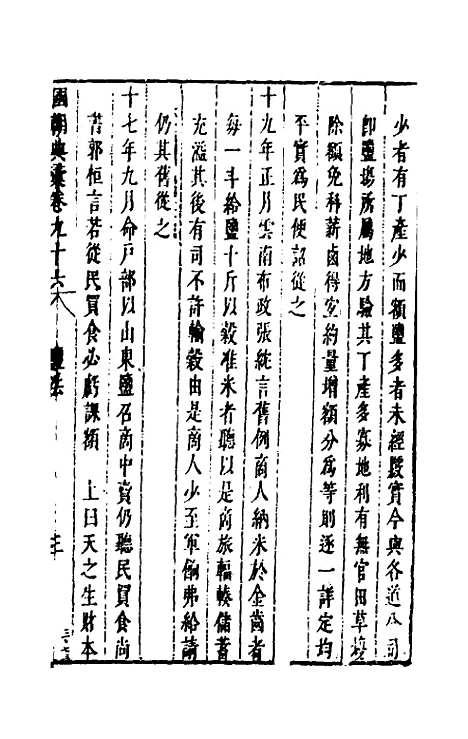 少者有丁產少而額鹽多者未經覈實今與各道分司
即鹽場所屬地方驗其丁產多寡地利有無官田草塲
除額免科薪鹵得宜約量增額分為等則逐一詳定均
平實為民便詔從之
十九年正月雲南布政張紞言舊例商人納米於金齒者
每一斗給鹽十斤以穀准米者聽以是商旅輻輳儲蓄
充溢其後有司不許輸穀由是商人少至軍餉弗給請
仍其舊從之
十七年九月命戶部以山東鹽召商中賣仍聽民買食尚
書郭恒言若從民買食必虧課額　上曰天之生財本
國朝典彙卷九十六　鹽法　三